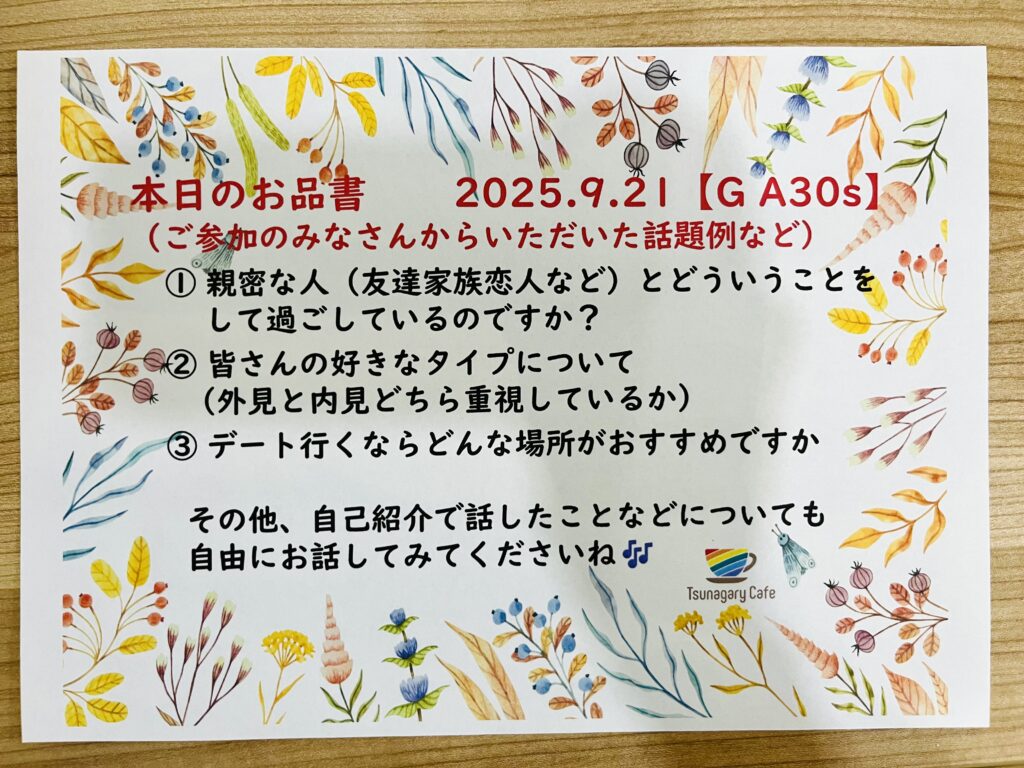 本日のお品書　　2025.9.21【G A30s】
（ご参加のみなさんからいただいた話題例など）
① 親密な人（友達家族恋人など）とどういうことを
して過ごしているのですか？
② 皆さんの好きなタイプについて
（外見と内見どちら重視しているか）
③ デート行くならどんな場所がおすすめですか
その他、自己紹介で話したことなどについても
自由にお話してみてくださいね🎶
Tsunagary Cafe